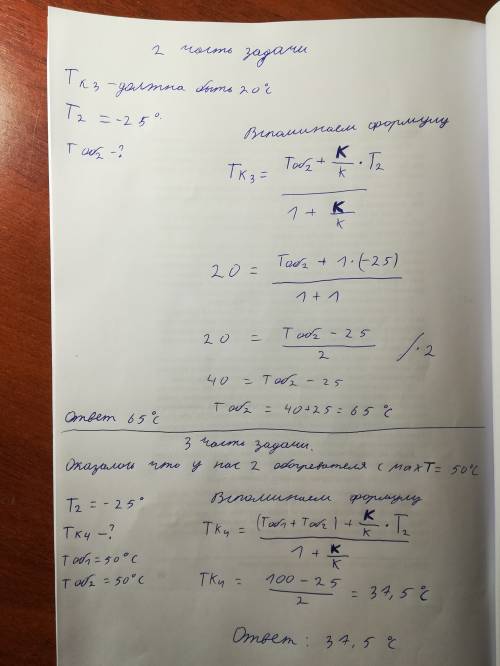 2 часть задачи
Tк3 - должна быть 20°C
T2 = -25°
Tоб2 - ?
Вспоминаем формулу
Tк3 = (Tоб2 + K/k · T2) / (1 + K/k)
20 = (Tоб2 + 1·(-25)) / (1 + 1)
20 = (Tоб2 - 25) / 2 /·2
40 = Tоб2 - 25
Tоб2 = 40+25 = 65°C
Ответ 65°C
3 часть задачи.
Оказалось что у нас 2 обогревателя с maxT = 50°C
T2 = -25°
Tк4 - ?
Tоб1 = 50°C
Tоб2 = 50°C
Вспоминаем формулу
Tк4 = ((Tоб1 + Tоб2) + K/k · T2) / (1 + K/k)
Tк4 = (100 - 25) / 2 = 37,5°C
Ответ: 37,5°C